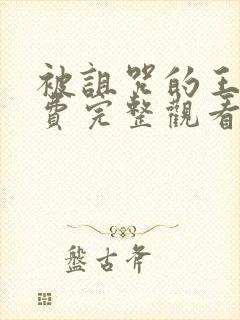 被詛咒的王
費完整觀看
盤古斧